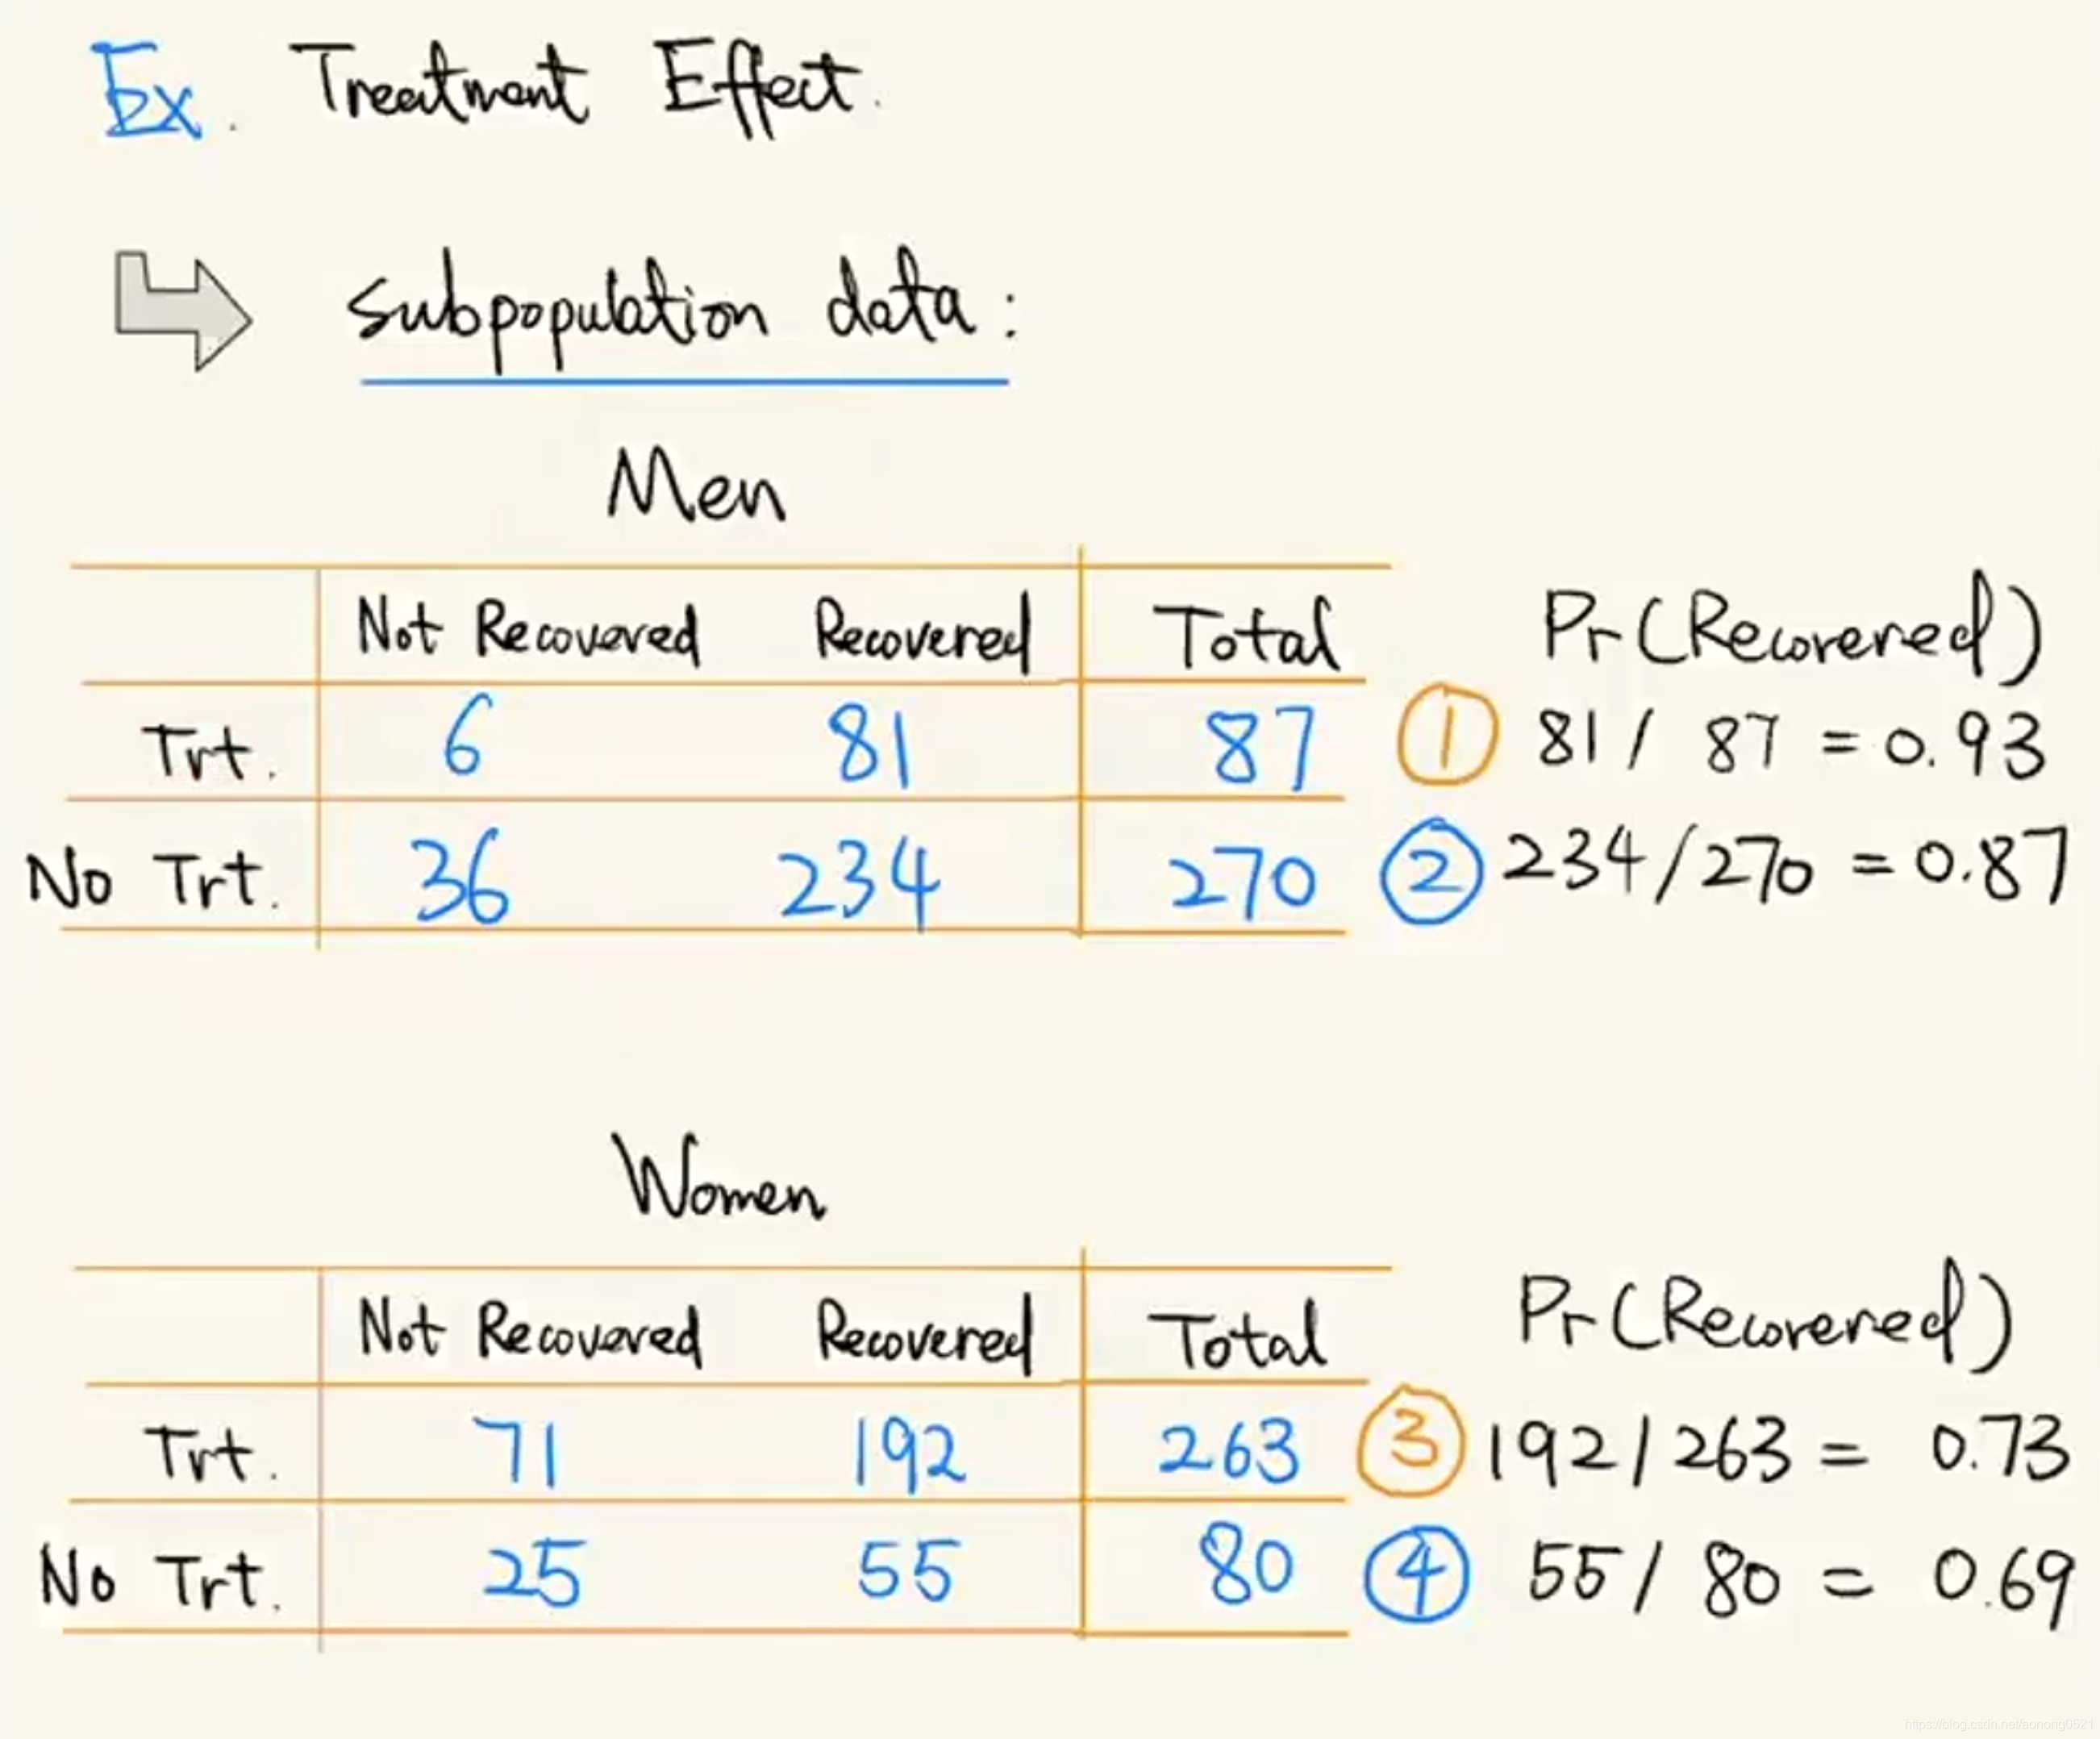 Ex. Treatment Effect.
subpopulation data:
Men
Not Recovered Recovered Total Pr(Recovered)
Trt. 6 81 87 ① 81/87 = 0.93
No Trt. 36 234 270 ② 234/270 = 0.87
Women
Not Recovered Recovered Total Pr(Recovered)
Trt. 71 192 263 ③ 192/263 = 0.73
No Trt. 25 55 80 ④ 55/80 = 0.69
https://blog.csdn.net/aonong0521